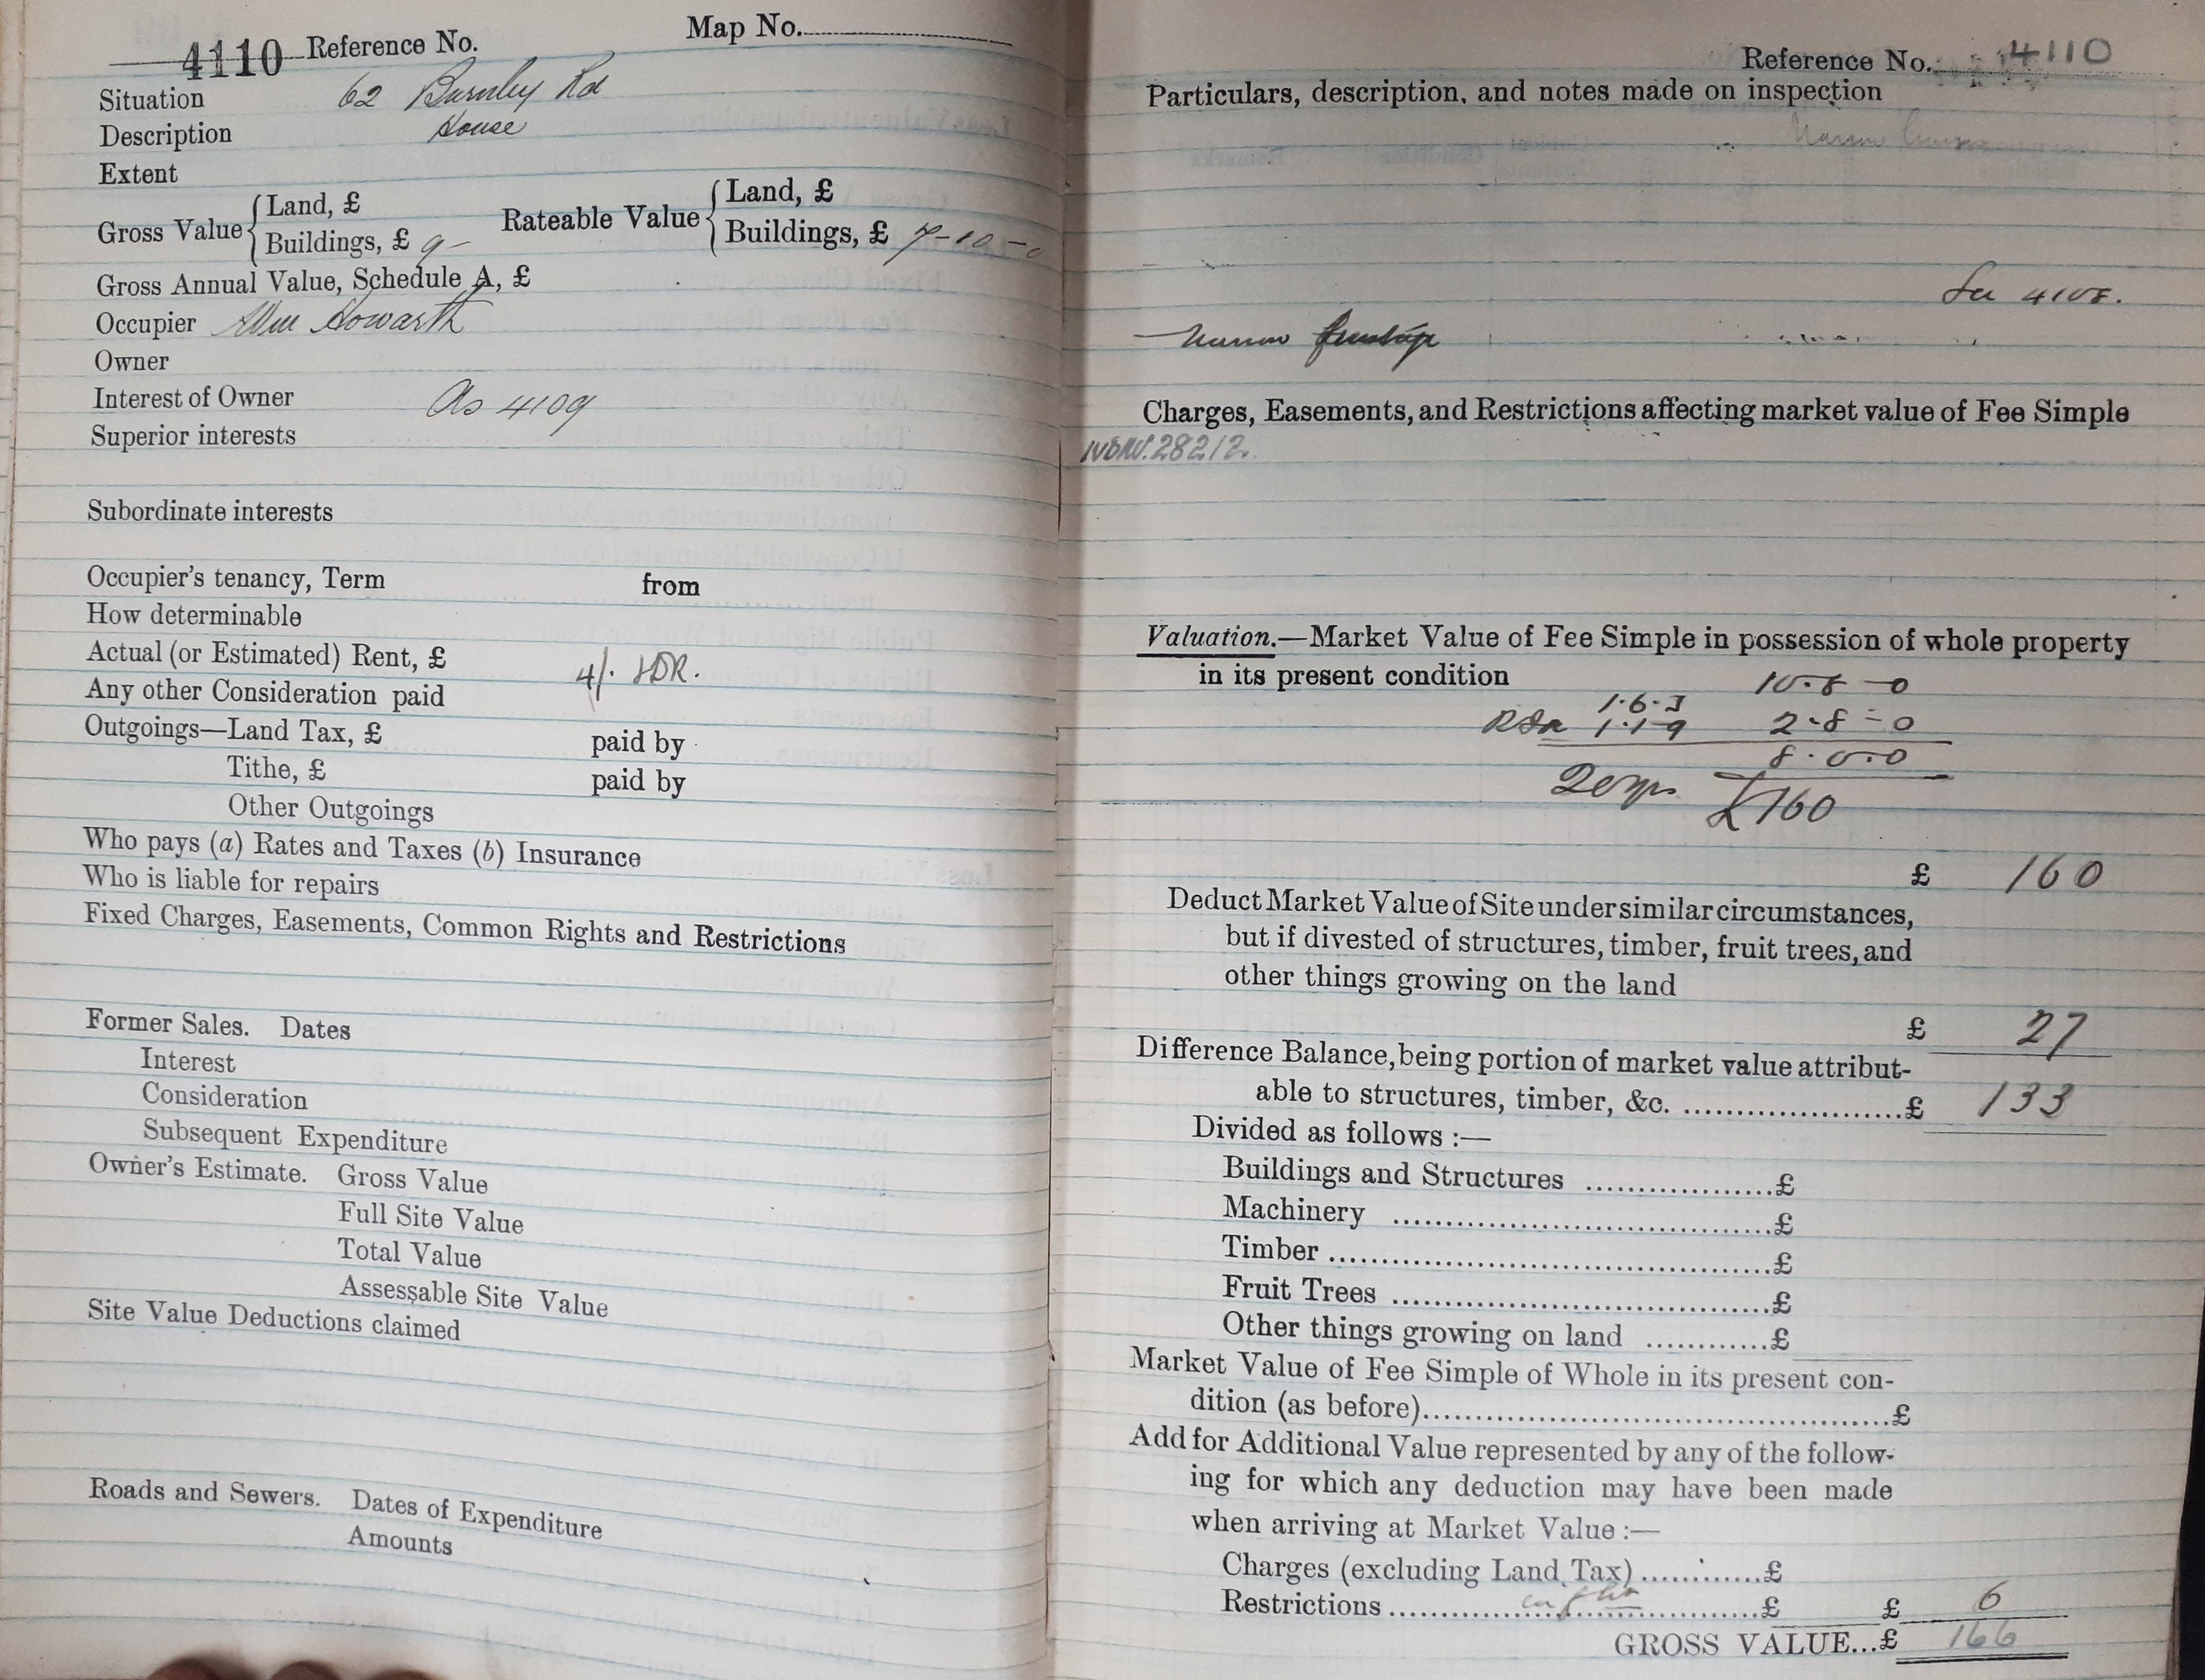 4110 Reference No. Map No.
Situation 62 Burnley Rd
Description House
Extent
Gross Value { Land, £
Buildings, £ 9-
Rateable Value { Land, £
Buildings, £ 7-10-0
Gross Annual Value, Schedule A, £
Occupier Wm Howarth
Owner
Interest of Owner As 4109
Superior interests
Subordinate interests
Occupier's tenancy, Term from
How determinable
Actual (or Estimated) Rent, £ 4/. LDR.
Any other Consideration paid
Outgoings—Land Tax, £ paid by
Tithe, £ paid by
Other Outgoings
Who pays (a) Rates and Taxes (b) Insurance
Who is liable for repairs
Fixed Charges, Easements, Common Rights and Restrictions
Former Sales. Dates
Interest
Consideration
Subsequent Expenditure
Owner's Estimate. Gross Value
Full Site Value
Total Value
Assessable Site Value
Site Value Deductions claimed
Roads and Sewers. Dates of Expenditure
Amounts
Reference No. 4110
Particulars, description, and notes made on inspection
Narrow
See 4108.
Narrow frontage
Charges, Easements, and Restrictions affecting market value of Fee Simple
28212.
Valuation.—Market Value of Fee Simple in possession of whole property
in its present condition 10-8-0
1.6.3
1.1.9 2-8-0
8.0.0
20 yrs £160
£ 160
Deduct Market Value of Site under similar circumstances,
but if divested of structures, timber, fruit trees, and
other things growing on the land
£ 27
Difference Balance, being portion of market value attribut-
able to structures, timber, &c. £ 133
Divided as follows :—
Buildings and Structures £
Machinery £
Timber £
Fruit Trees £
Other things growing on land £
Market Value of Fee Simple of Whole in its present con-
dition (as before) £
Add for Additional Value represented by any of the follow-
ing for which any deduction may have been made
when arriving at Market Value :—
Charges (excluding Land Tax) £
Restrictions £ £ 6
GROSS VALUE...£ 166